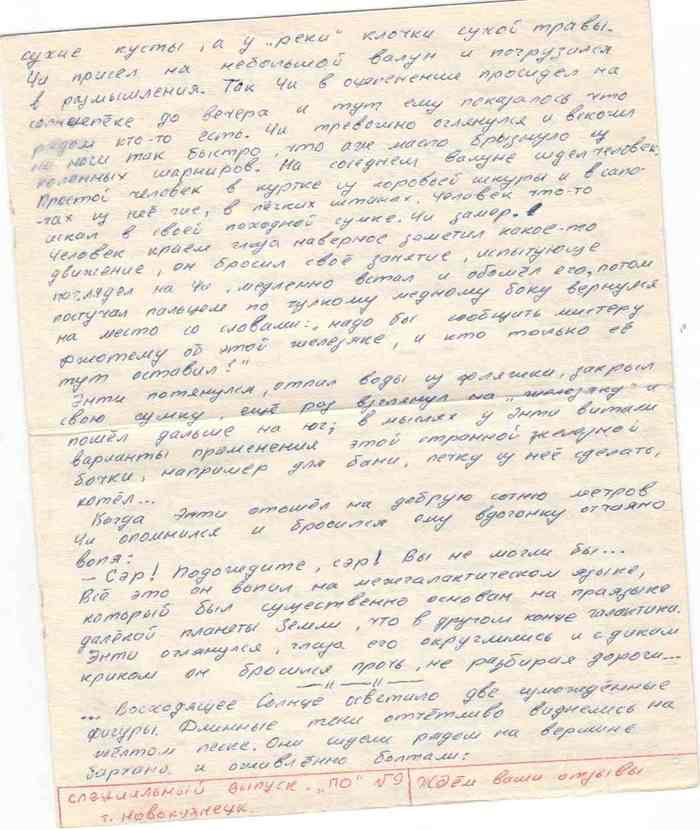 сухие кусты, а у „реки" клочки сухой травы.
Чи присел на небольшой валун и погрузился
в размышления. Так Чи в оцепенение просидел на
солнцепёке до вечера и тут ему показалось что
рядом кто-то есть. Чи тревожно оглянулся и вскочил
на ноги так быстро, что аж масло брызнуло из
коленных шарниров. На соседнем валуне сидел человек.
Простой человек в куртке из коровьей шкуры и в сапо-
-гах из неё же, в лёгких штанах. Человек что-то
искал в своей походной сумке. Чи замер.
Человек краем глаза наверное заметил какое-то
движение, он бросил своё занятие, испытующе
поглядел на Чи, медленно встал и обошёл его, потом
постучал пальцем по гулкому медному боку вернулся
на место со словами: „надо бы сообщить мистеру
ржотему об этой железяке, и кто только её
тут оставил?"
Энти потянулся, отпил воды из фляжки, закрыл
свою сумку, ещё раз взглянул на „железяку" и
пошёл дальше на юг; в мыслях у Энти витали
варианты применения этой странной железной
бочки, например для бани, печку из неё сделать,
котёл...
Когда Энти отошёл на добрую сотню метров
Чи опомнился и бросился ему вдогонку отчаяно
вопя:
— Сэр! Подождите, сэр! Вы не могли бы...
Всё это он вопил на межгалактическом языке,
который был существенно основан на праязыке
далёкой планеты Земли, что в другом конце галактики.
Энти оглянулся, глаза его округлились и с диким
криком он бросился прочь, не разбирая дороги...
—"—"—
... Восходящее Солнце осветило две измождённые
фигуры. Длинные тени отчётливо виднелись на
жёлтом песке. Они сидели рядом на вершине
бархана и оживлённо болтали:
специяльный выпуск „ПО" №9 Ждём ваши отзывы
г. Новокузнецк.